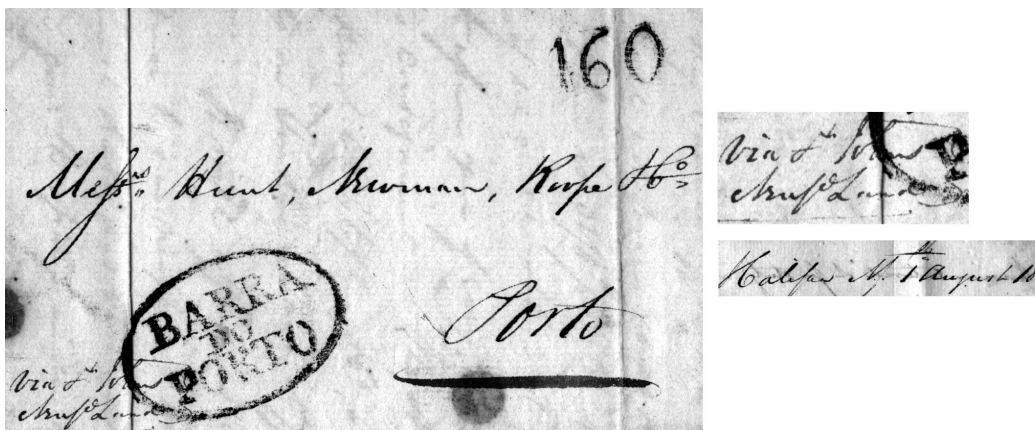 160
Messrs Hunt, Newman, Roope & Co
Porto
BARRA
DO
PORTO
via St Johns
Newfd Land
via St Johns
Newfd Land
P
Halifax 1th August